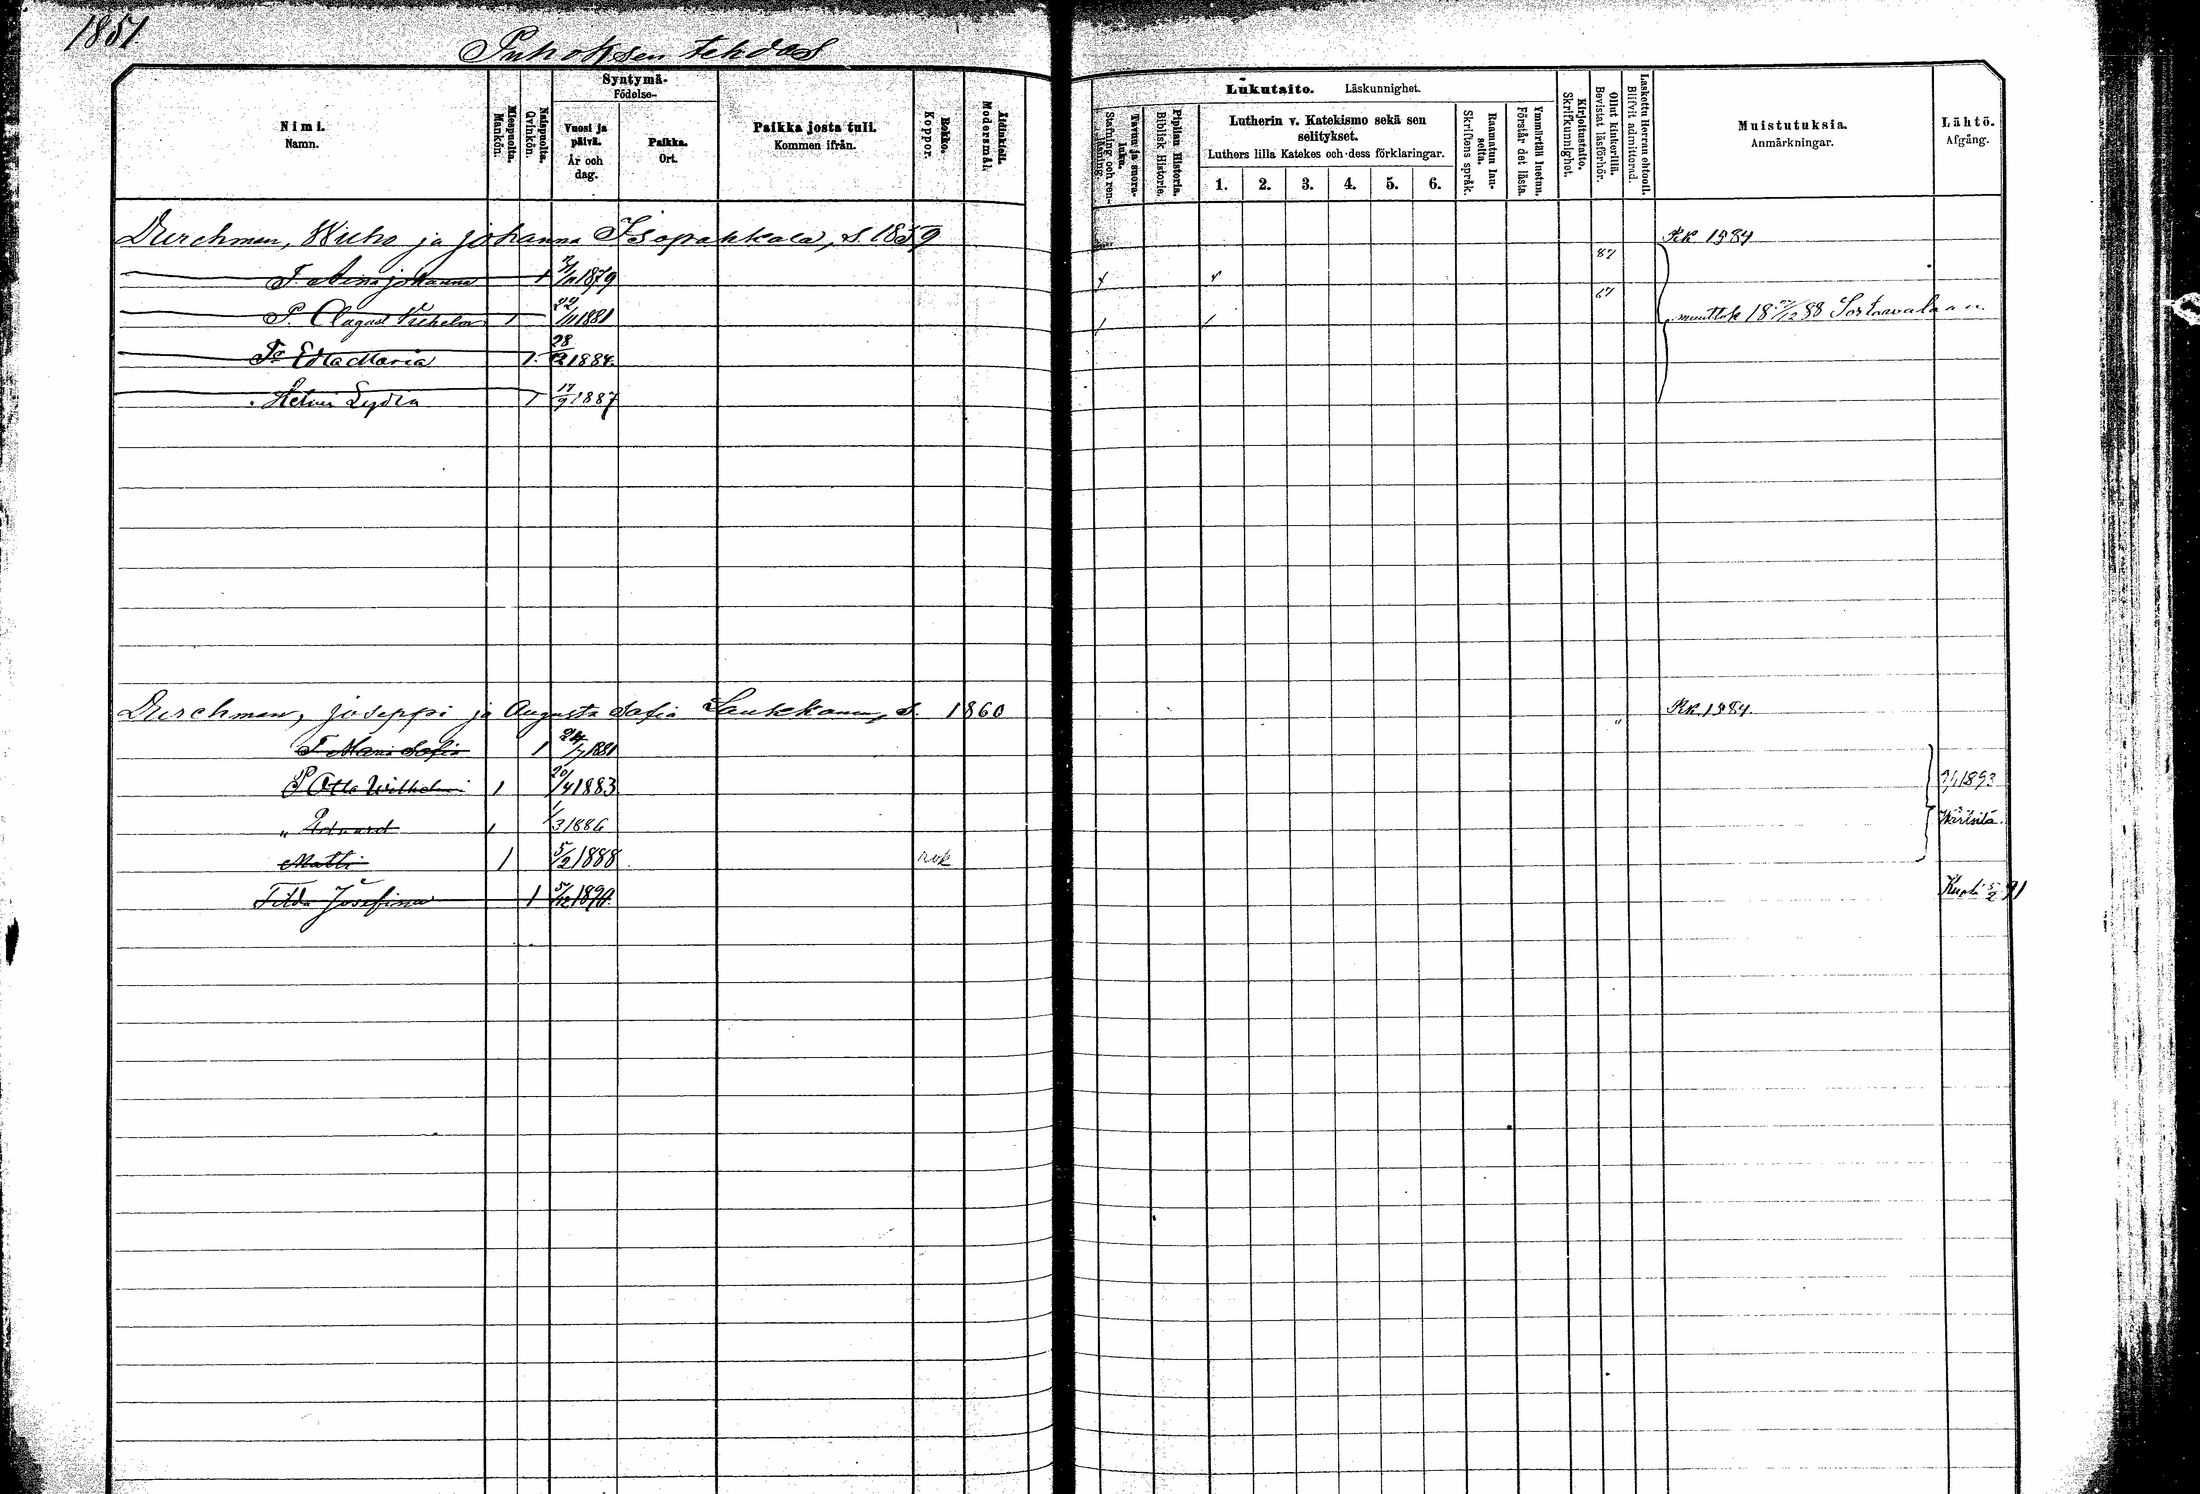 1851.
Puhoksen tehdas
Nimi.
Namn.
Miespuolia.
Mankön.
Naispuolia.
Qvinkön.
Syntymä-
Födelse-
Vuosi ja päivä.
År och dag.
Paikka.
Ort.
Paikka josta tuli.
Kommen ifrån.
Rokko.
Koppor.
Äidinkieli.
Modersmål.
Lukutaito. Läskunnighet.
Tavuu ja suora luku.
Stafning och renläsning.
Piplian Historia.
Biblisk Historie.
Lutherin v. Katekismo sekä sen
selitykset.
Luthers lilla Katekes och dess förklaringar.
1. 2. 3. 4. 5. 6.
Raamatun lauseita.
Skriftens språk.
Ymmärtää luetun.
Förstår det lästa.
Kirjoitustaito.
Skrifkunnighet.
Ollut kinkerillä.
Bevistat läsförhör.
Laskettu Herran ehtooll.
Blifvit admitterad.
Muistutuksia.
Anmärkningar.
Lähtö.
Afgång.
Durchman, Wicho ja Johanna Isopahkala, s. 1859 Rk 1584
T. Aina Johanna 1 1879 87
P. August Vilhelm 1 22/11 1881 67 muuttok 18 88 Sortavalaan
T. Edla Maria 1. 28/12 1884.
Helmi Lydia 1 17/9 1887
Durchman, Joseppi ja Augusta Sofia Laukkanen, s. 1860 Rk. 1584.
T Maria Sofia 1 24/7 1881
P Otto Wilhelmi 1 20/4 1883 1893
" Edvard 1 1/3 1886 Wärtsilä.
Matti 1 5/2 1888 rok
Tilda Josefina 1 5/12 1890. Kuoli 5/2 91